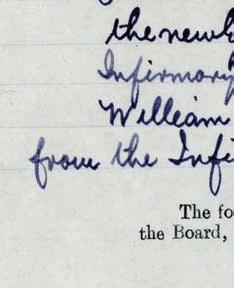 the newl
Infirmary
William
from the Infi
The fo
the Board,